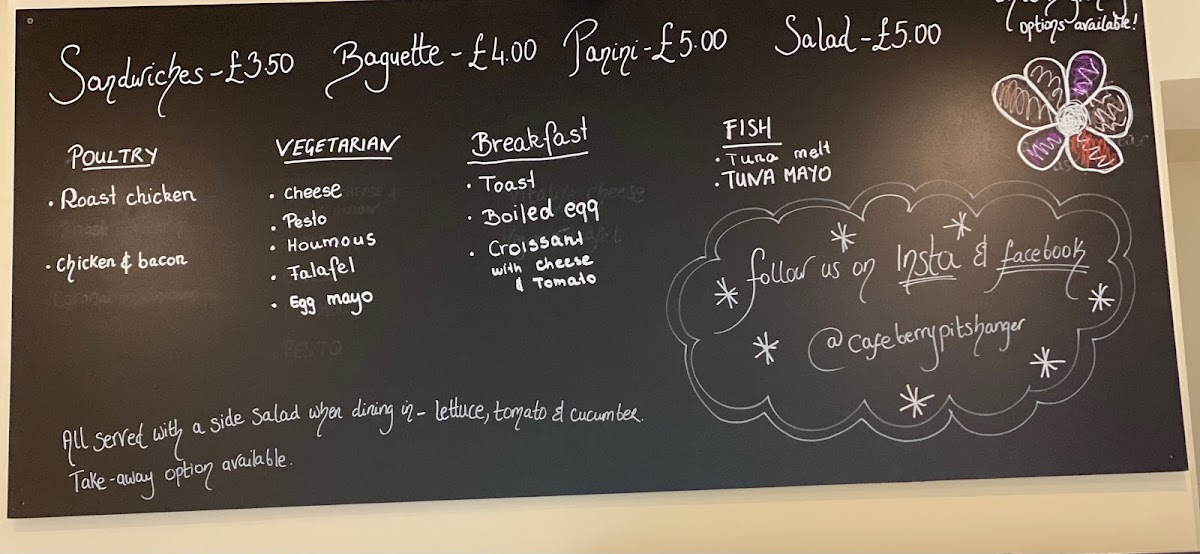 Sandwiches - £3.50 Baguette - £4.00 Panini - £5.00 Salad - £5.00
options available!
POULTRY
• Roast chicken
• chicken & bacon
VEGETARIAN
• cheese
• Pesto
• Houmous
• Falafel
• Egg mayo
Breakfast
• Toast
• Boiled egg
• Croissant
with cheese
& Tomato
FISH
• Tuna melt
• TUNA MAYO
follow us on Insta & facebook
@cafeberrypitshanger
All served with a side salad when dining in - lettuce, tomato & cucumber.
Take-away option available.